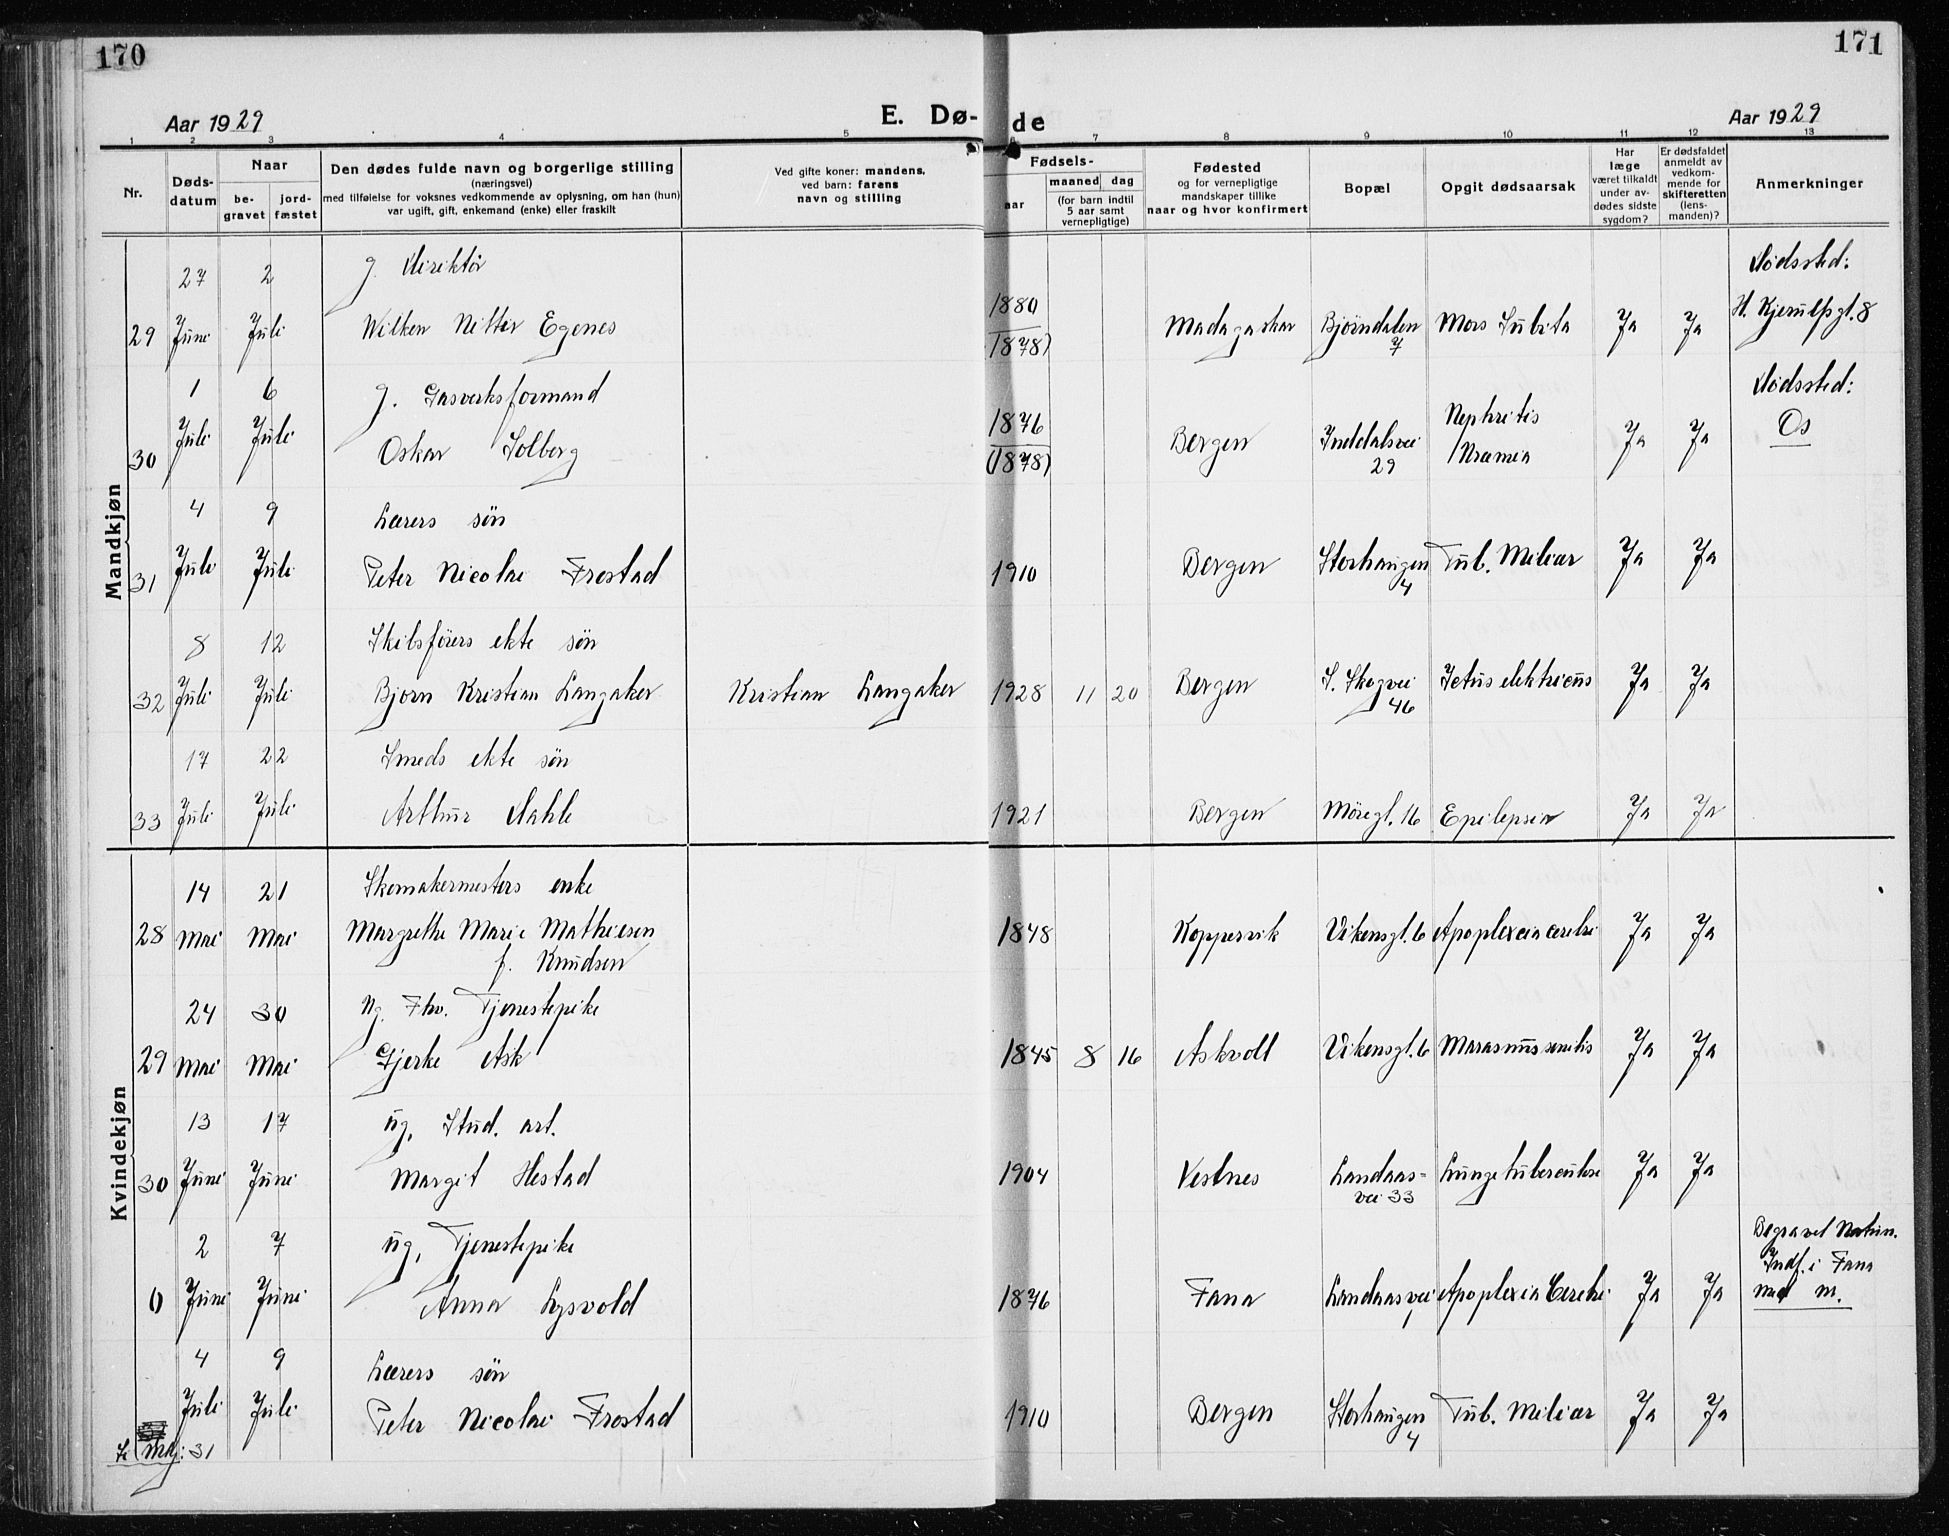 170
171
Aar 1929
E. Dø-
de
Aar 1929
1 2 3 4 5 6 7 8 9 10 11 12 13
Nr.
Døds-
datum
Naar
be-
gravet
jord-
fæstet
Den dødes fulde navn og borgerlige stilling
(næringsvei)
med tilføielse for voksnes vedkommende av oplysning, om han (hun)
var ugift, gift, enkemand (enke) eller fraskilt
Ved gifte koner: mandens,
ved barn: farens
navn og stilling
Fødsels-
aar
maaned dag
(for barn indtil
5 aar samt
vernepligtige)
Fødested
og for vernepligtige
mandskaper tillike
naar og hvor konfirmert
Bopæl
Opgit dødsaarsak
Har
læge
været tilkaldt
under av-
dødes sidste
sygdom?
Er dødsfaldet
anmeldt av
vedkom-
mende for
skifteretten
(lens-
manden)?
Anmerkninger
Mandkjøn
27 2 g. Direktör Dødssted:
29 Juni Juli Wilken Nitter Egenes 1880 (1878) Madagaskar Bjørndalen 7 Mors Subita Ja Ja H. Kjerulfsgt. 8
1 6 g. Gasverksformand Dødssted:
30 Juli Juli Oskar Solberg 1876 (1878) Bergen Inddalsvei 29 Nephritis Uræmia Ja Ja Os
4 9 Lærers søn
31 Juli Juli Peter Nicolai Frostad 1910 Bergen Storhaugen 4 Tub. Miliar Ja Ja
8 12 Skibsförers ekte søn
32 Juli Juli Bjørn Kristian Langaker Kristian Langaker 1928 11 20 Bergen S. Skogvei 46 Ictus elektricus Ja Ja
17 22 Smeds ekte søn
33 Juli Juli Arthur Dahle 1921 Bergen Möregt. 16 Epilepsia Ja Ja
Kvindekjøn
14 21 Skomakermesters enke
28 Mai Mai Margrethe Marie Mathiesen 1848 Koppervik Vikensgt. 6 Apoplexia cerebri Ja Ja
f. Knudsen
24 30 Ug. Fhv. Tjenestepike
29 Mai Mai Gjerke Ask 1845 8 16 Askvoll Vikensgt. 6 Marasmus senilis Ja Ja
13 17 ug. Stud. art.
30 Juni Juni Margit Hestad 1904 Vestnes Landaas- Lungetuberculose Ja Ja
vei 33
2 7 ug. Tjenestepike Begravet
0 Juni Juni Anna Lysvold 1876 Fana Landaasvei Apoplexia Cerebri Ja Ja Indf. i Fana
m.
4 9 Lærers søn
Juli Juli Peter Nicolai Frostad 1910 Bergen Storhaugen 4 Tub. Miliar Ja Ja
Se Mkj: 31